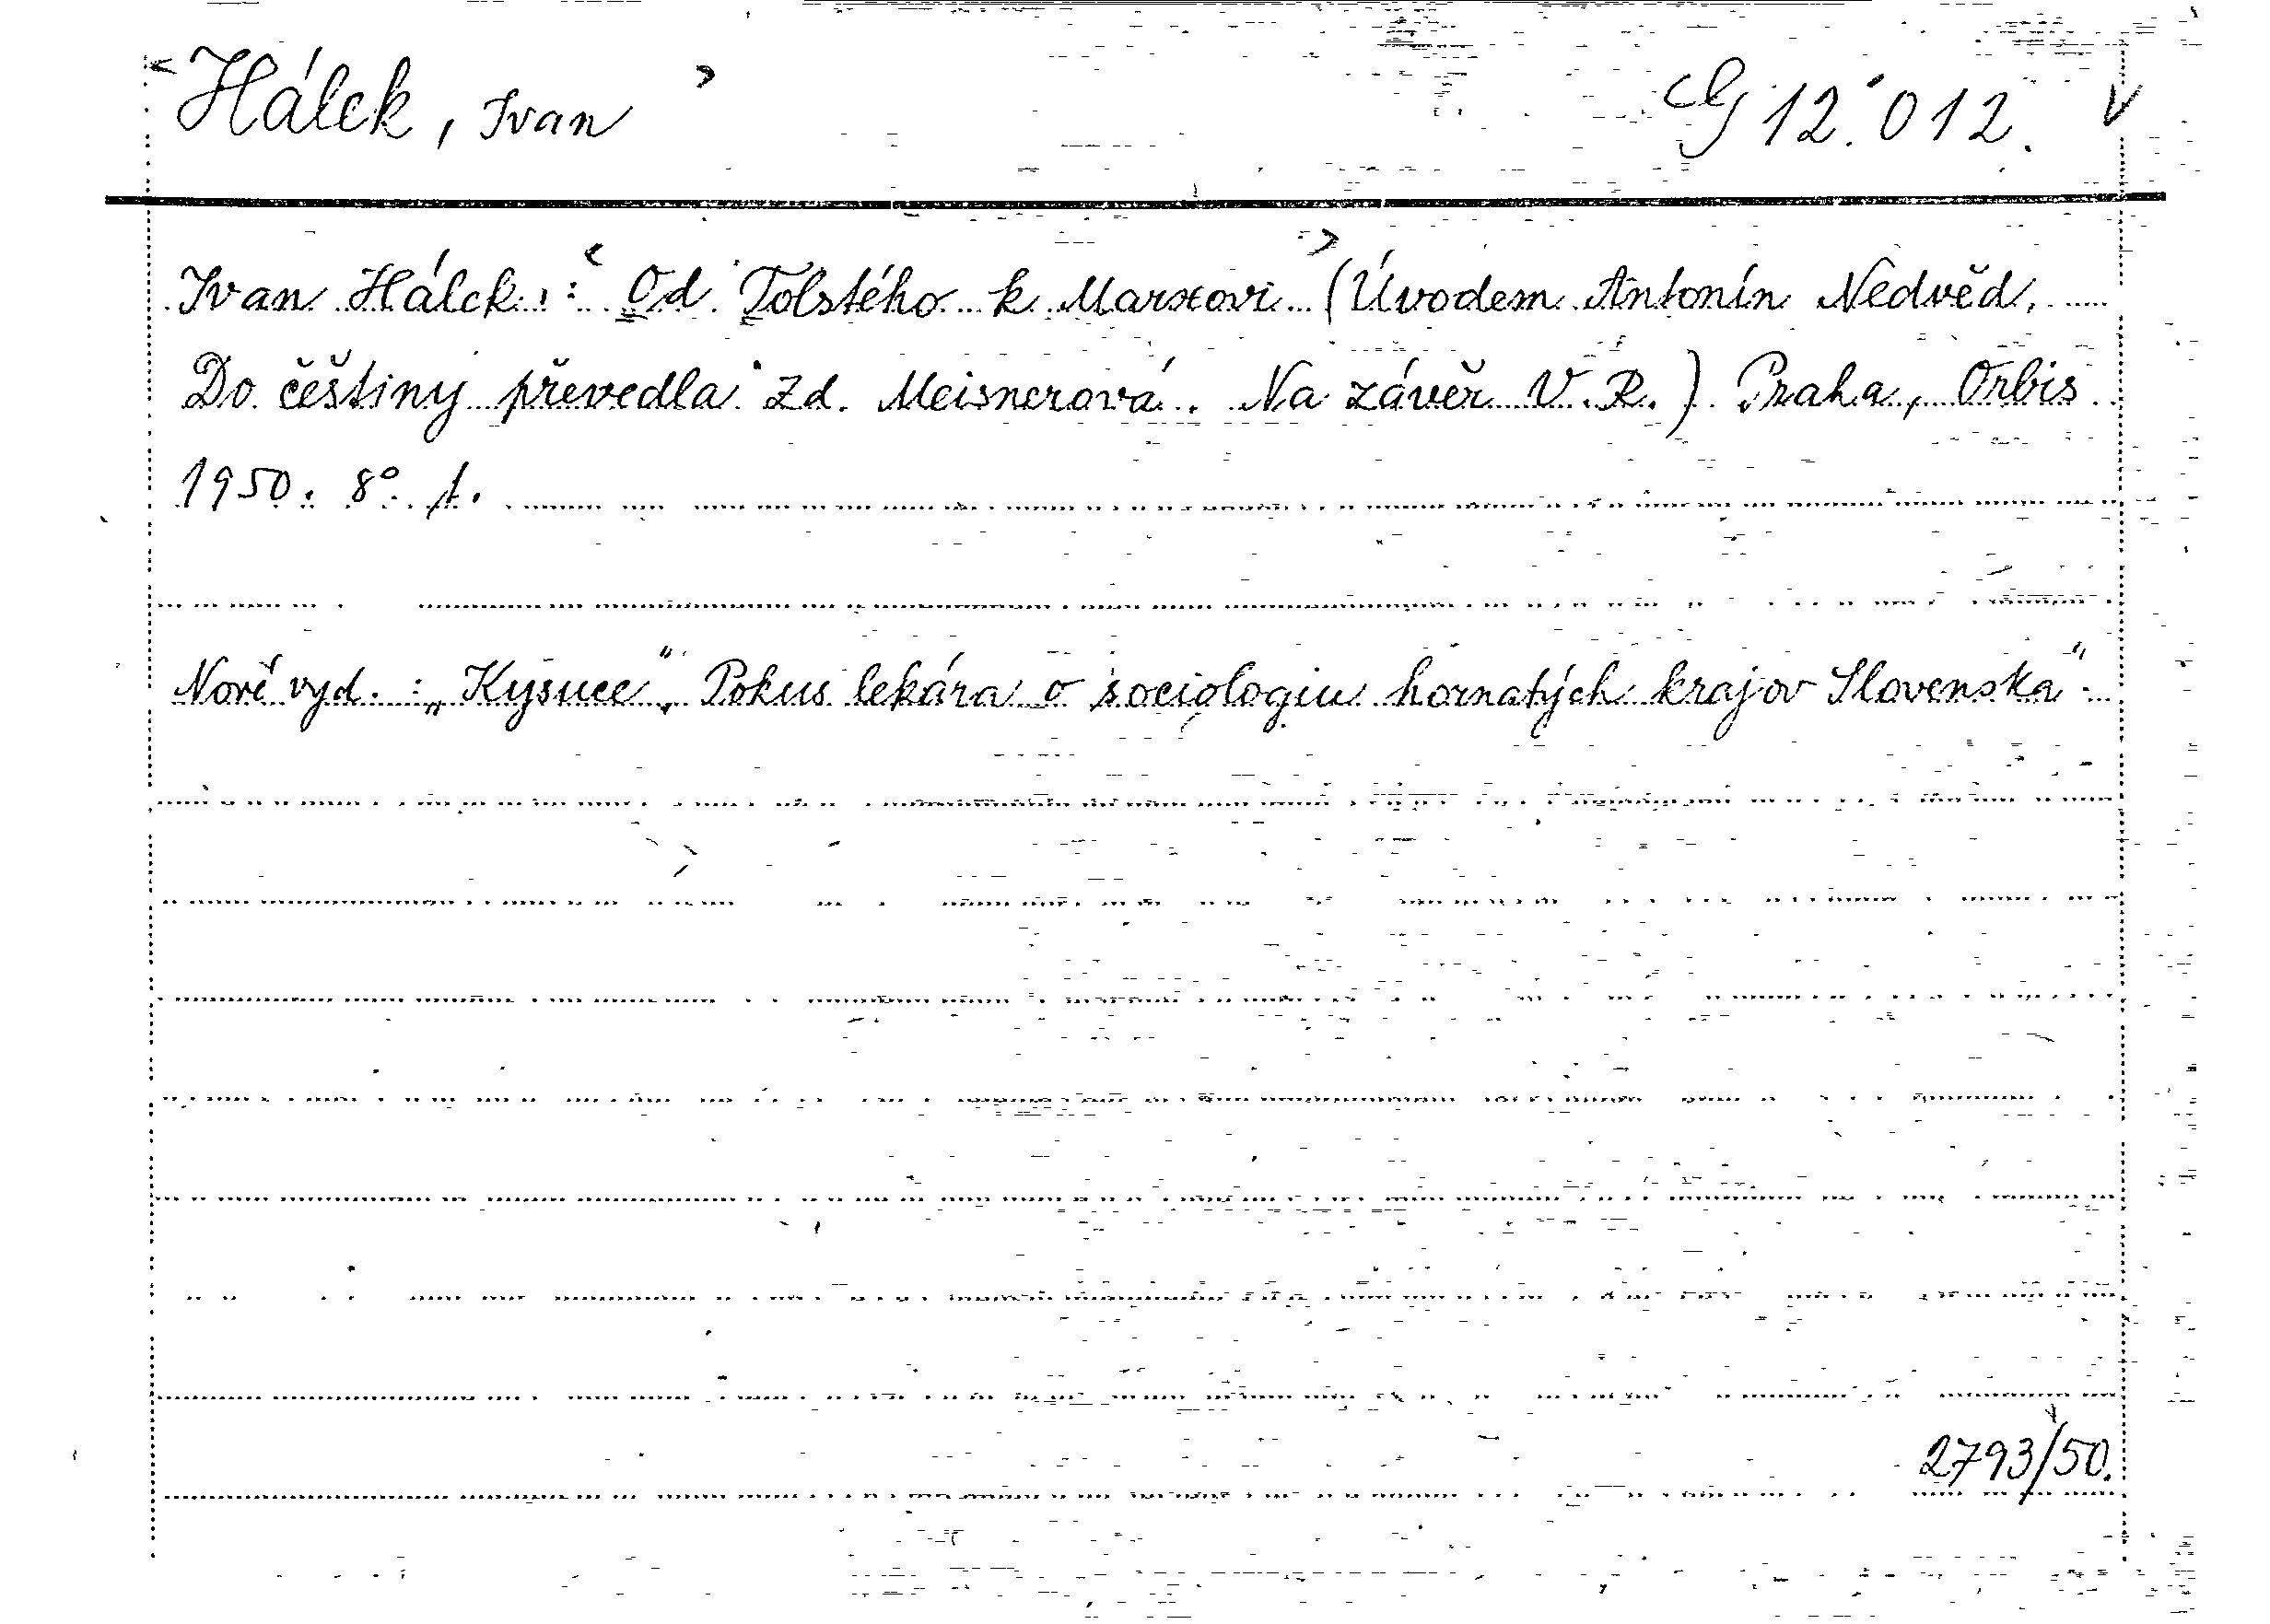 Hálek, Ivan G 12.012.
Ivan Hálek: Od Tolstého k Marxovi (Úvodem Antonín Nedvěd.
Do češtiny převedla Zd. Meisnerová. Na závěr V. R.) Praha, Orbis
1950. 8°. 1.
Nové vyd.: „Kysuce". Pokus lekára o sociologiu hornatých krajov Slovenska"
2793/50.